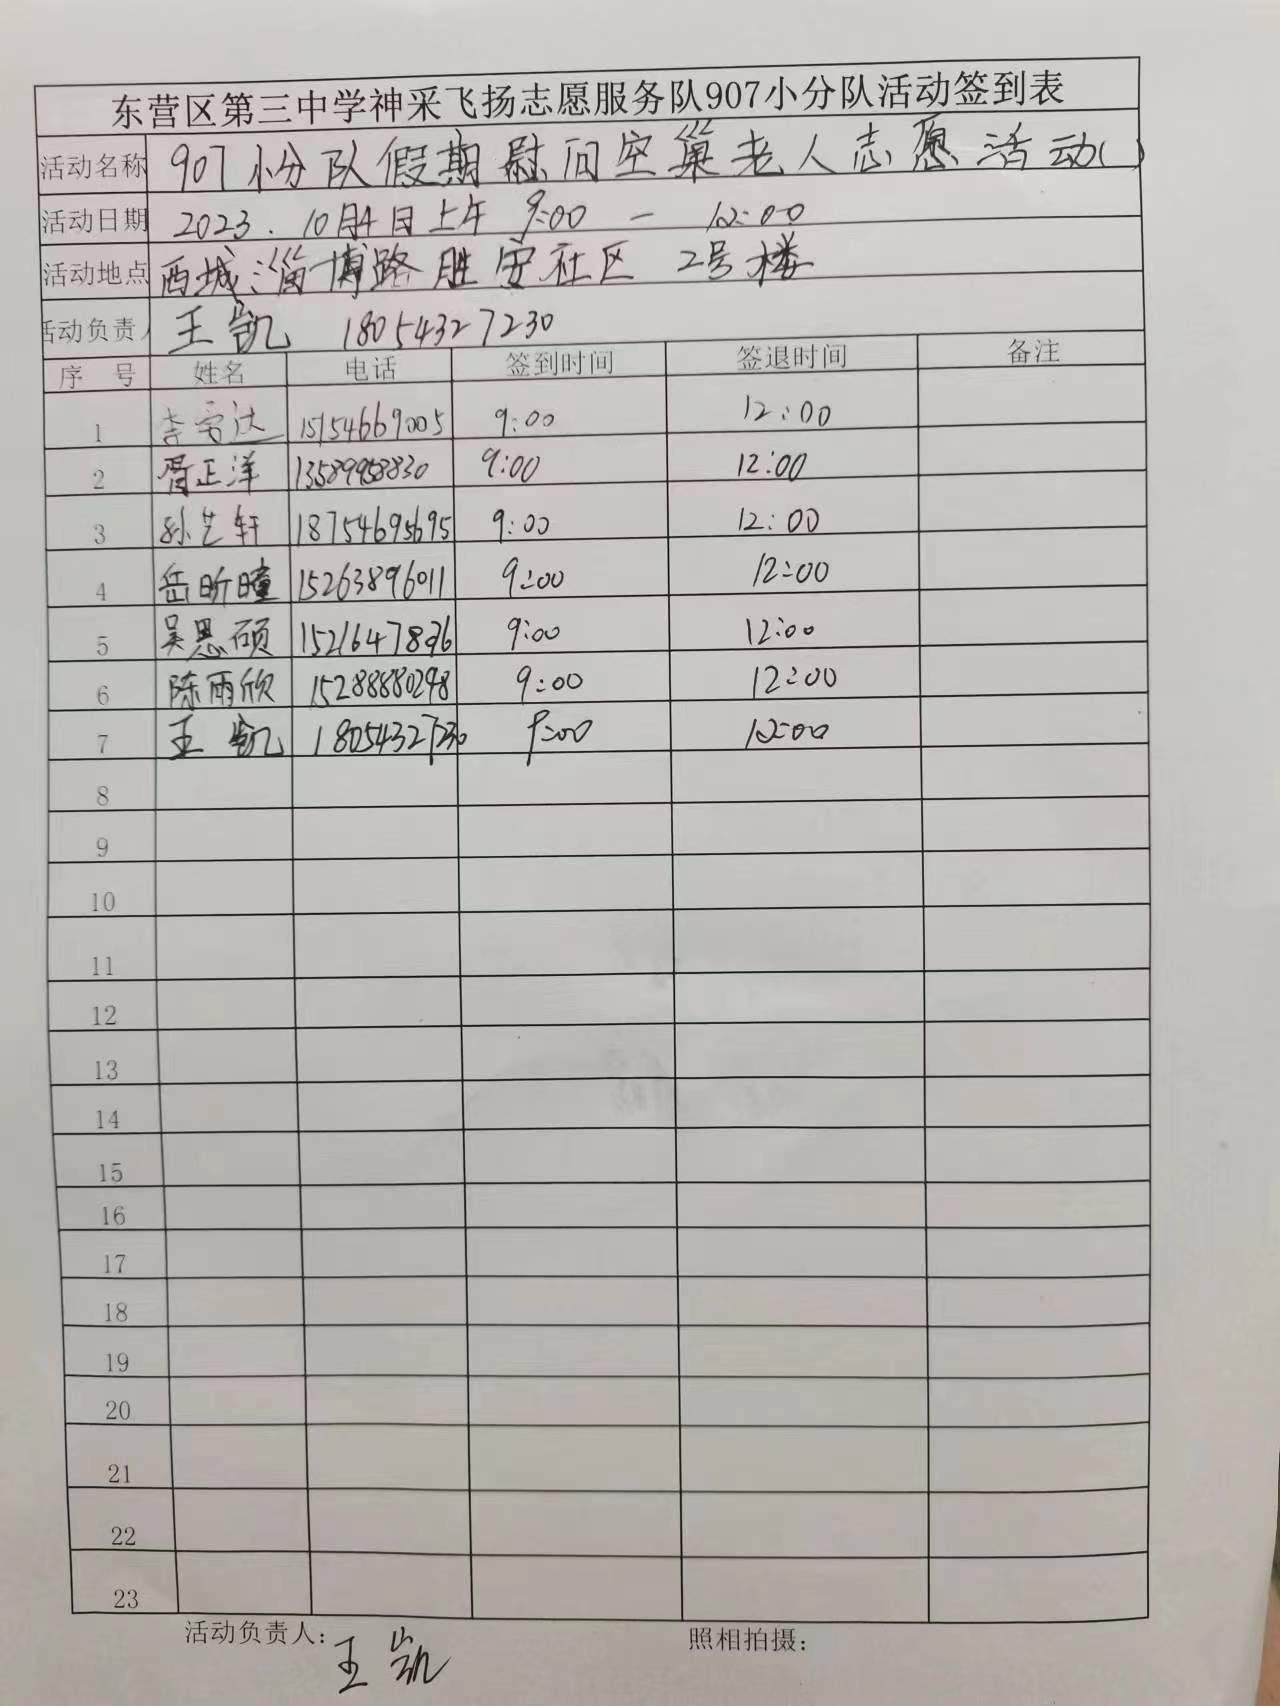 东营区第三中学神采飞扬志愿服务队907小分队活动签到表
活动名称 907小分队假期慰问空巢老人志愿活动( )
活动日期 2023. 10月4日上午 9:00 — 12:00
活动地点 西城淄博路胜安社区 2号楼
活动负责人 王凯 18054327230
序号 姓名 电话 签到时间 签退时间 备注
1 15154669005 9:00 12:00
2 胥正洋 13589958830 9:00 12:00
3 孙艺轩 18754695695 9:00 12:00
4 岳昕曈 15263896011 9:00 12:00
5 吴思硕 9:00 12:00
6 陈雨欣 15288880298 9:00 12:00
7 王凯 18054327230 9:00 12:00
8
9
10
11
12
13
14
15
16
17
18
19
20
21
22
23
活动负责人: 王凯 照相拍摄: